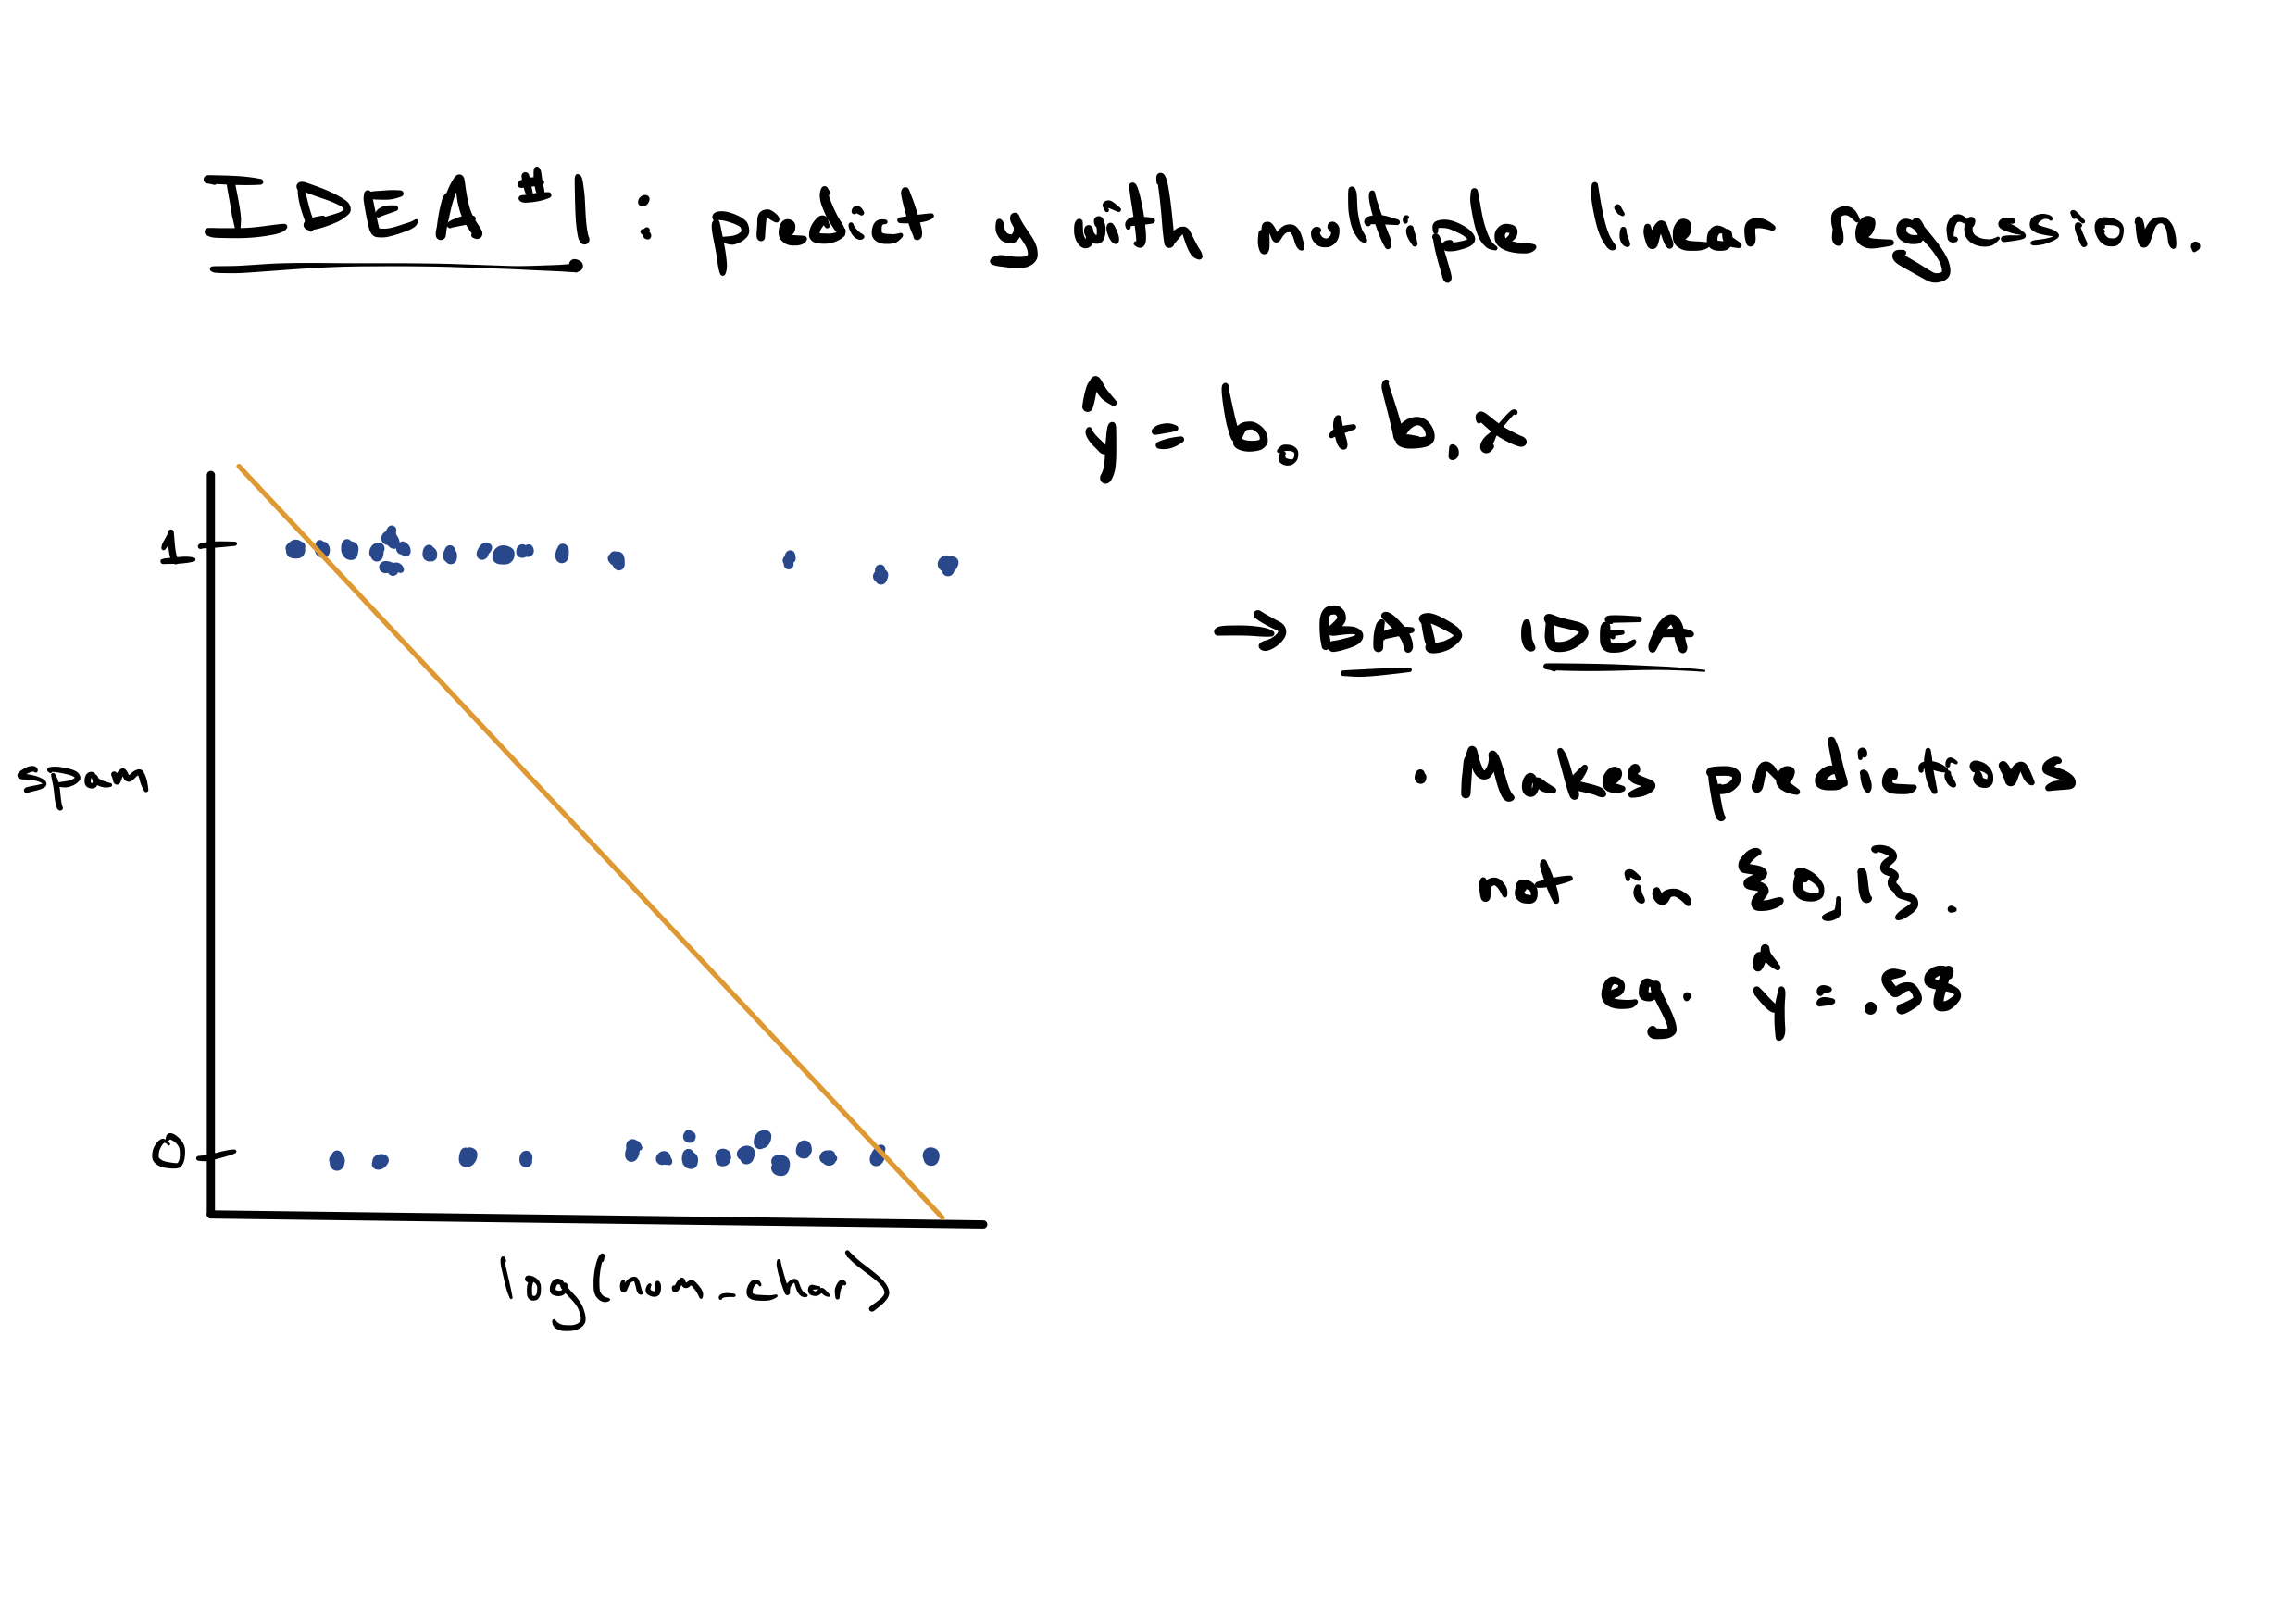 IDEA #1 : predict y with multiple linear regression.
ŷ = b₀ + b₁ x
1
→ BAD IDEA
spam
• Makes predictions
not in {0,1}.
eg. ŷ = .58
0
log(num_char)